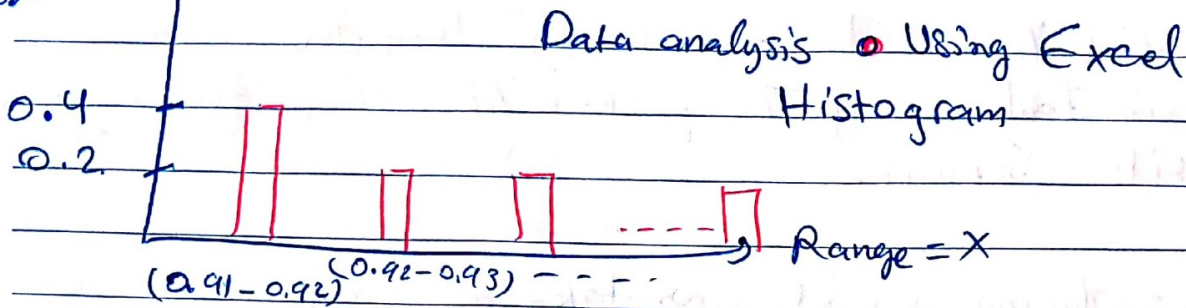 Data analysis Using Excel
Histogram
0.4
0.2
Range = X
(0.91-0.92) (0.92-0.93) - - - -